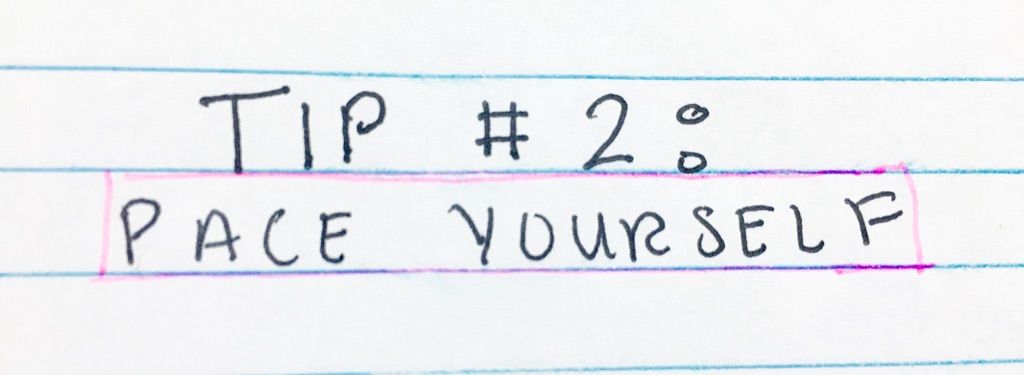 TIP # 2:
PACE YOURSELF